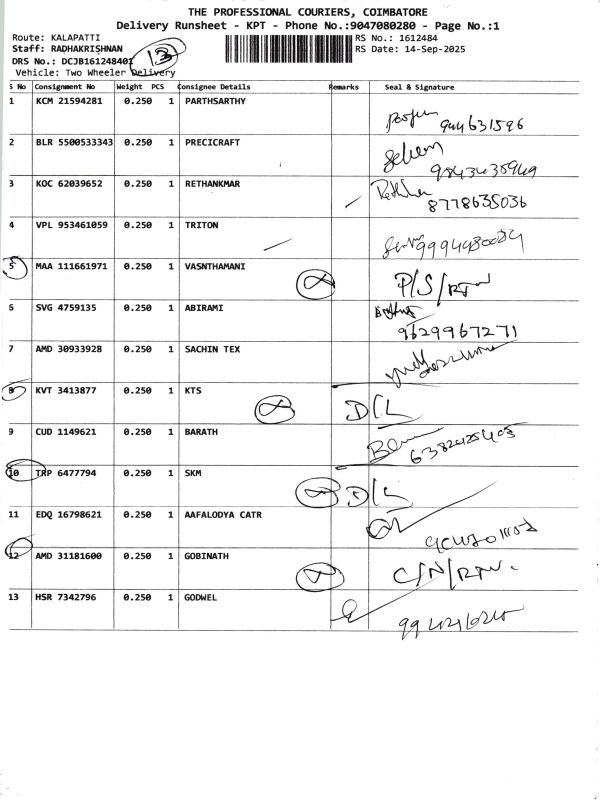 THE PROFESSIONAL COURIERS, COIMBATORE
Delivery Runsheet - KPT - Phone No.:9047080280 - Page No.:1
Route: KALAPATTI
RS No.: 1612484
Staff: RADHAKRISHNAN
RS Date: 14-Sep-2025
DRS No.: DCJB161248401
13
Vehicle: Two Wheeler Delivery
S No Consignment No Weight PCS Consignee Details Remarks Seal & Signature
1 KCM 21594281 0.250 1 PARTHSARTHY
944631596
2 BLR 5500533343 0.250 1 PRECICRAFT
9843435949
3 KOC 62039652 0.250 1 RETHANKMAR
8778635036
4 VPL 953461059 0.250 1 TRITON
9994930084
5 MAA 111661971 0.250 1 VASNTHAMANI P/S/RTN
6 SVG 4759135 0.250 1 ABIRAMI
9629967271
7 AMD 30933928 0.250 1 SACHIN TEX
8 KVT 3413877 0.250 1 KTS D/L
9 CUD 1149621 0.250 1 BARATH
6382425403
10 TRP 6477794 0.250 1 SKM D/L
11 EDQ 16798621 0.250 1 AAFALODYA CATR
12 AMD 31181600 0.250 1 GOBINATH C/N/RTN.
13 HSR 7342796 0.250 1 GODWEL